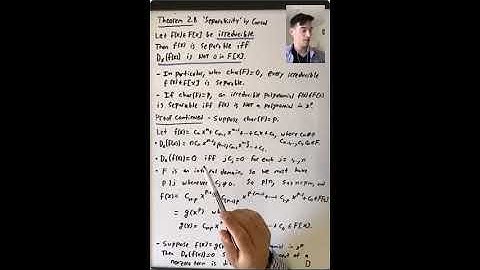 Theorem 2.8 'Separability' by Conrad
Let f(x)∈F[x] be irreducible.
Then f(x) is separable iff
Dx(f(x)) is NOT 0 in F[x].
- In particular, when char(F)=0, every irreducible
f(x)∈F[x] is separable.
- If char(F)=p, an irreducible polynomial f(x)∈F[x]
is separable iff f(x) is NOT a polynomial in x^p.
Proof Continued - Suppose char(F)=p.
Let f(x)= Cn x^n + Cn-1 x^n-1 + ... + C1 x + C0, where Cn≠0
Cn, Cn-1, ... C1, C0 ∈F.
• Dx(f(x)) = n Cn x^n-1 + (n-1) Cn-1 x^n-2 + ... + C1.
• Dx(f(x))=0 iff jCj=0 for each j=1,...,n
• F is an integral domain, so we must have
p|j whenever Cj≠0. So p|n, so n=mp, and
f(x)=
= g(x^p) where
g(x)= + C0 ∈F[x].
- Suppose f(x)=g( in x^p
Then Dx(f(x))=0 of a
nonzero term is